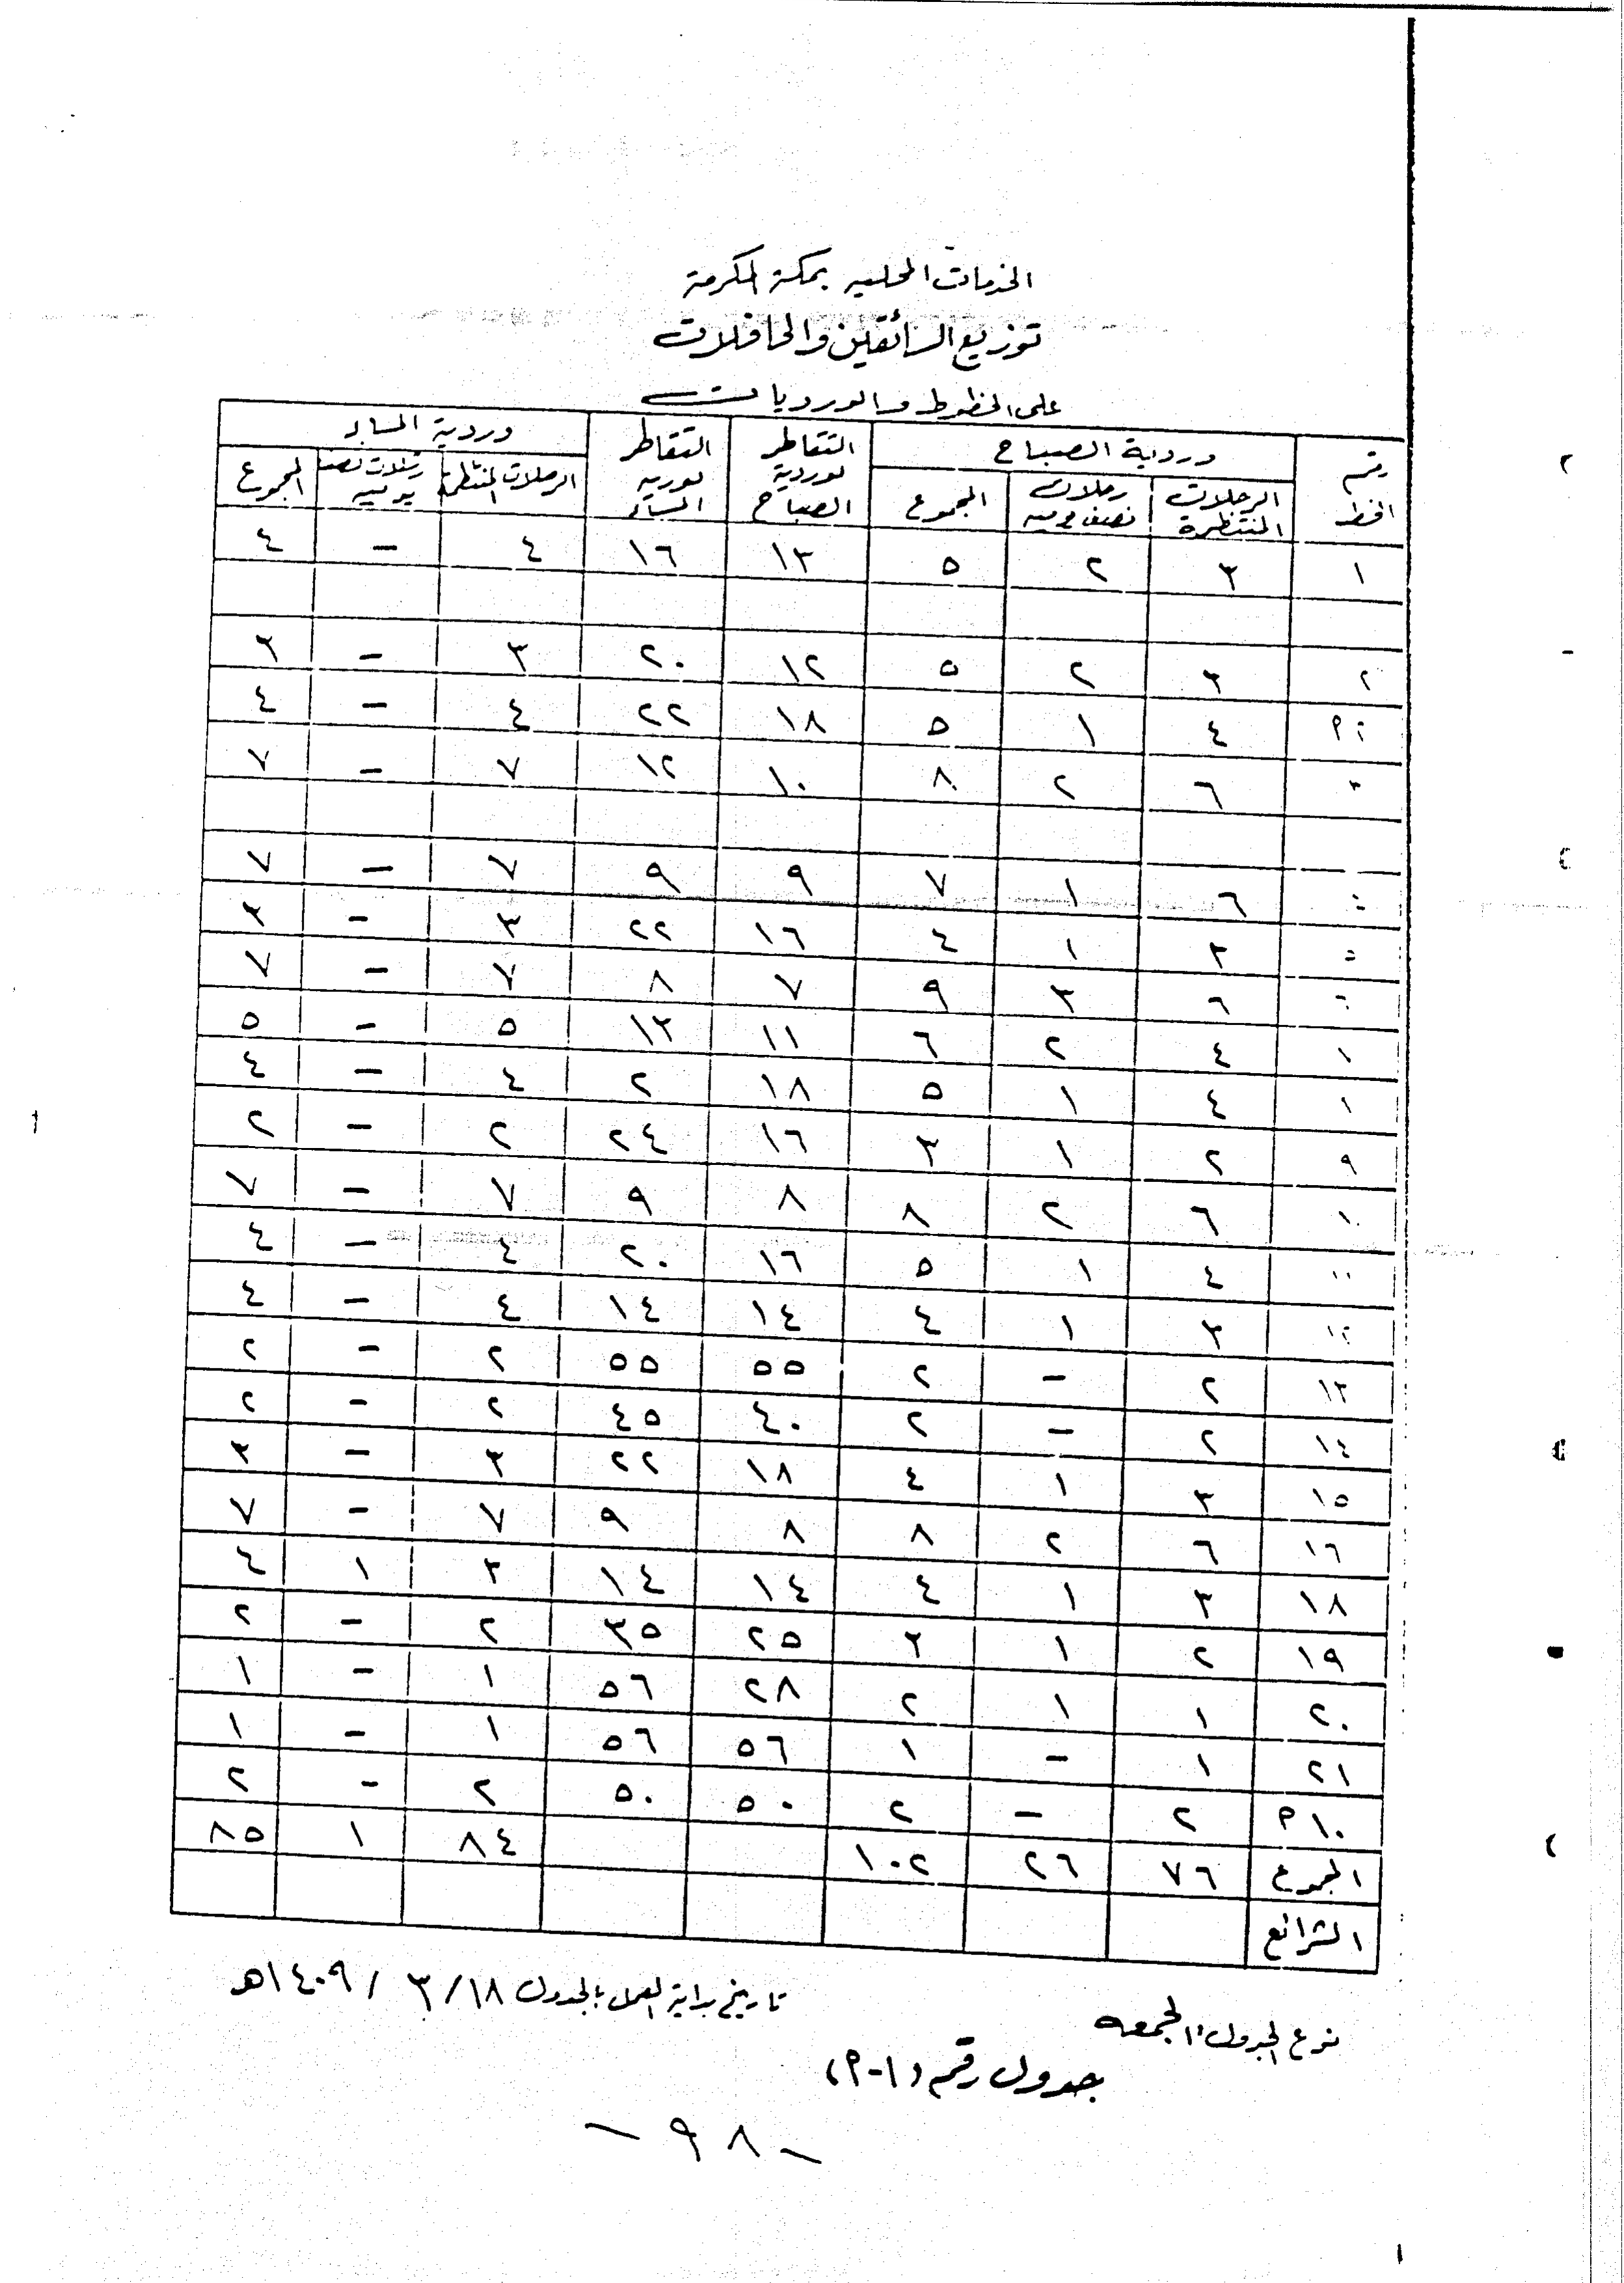 الخدمات المحليه بمكة المكرمة
توزيع السائقين والحافلات
على الخطوط والورديات
رقم الخط | وردية الصباح | التقاطر لوردية الصباح | التقاطر لوردية المساء | وردية المساء
الرحلات المنتظرة | رحلات نصف يوميه | المجموع | الرحلات المنتظمة | رحلات نصف يوميه | المجموع
١ | ٣ | ٢ | ٥ | ١٣ | ١٦ | ٤ | - | ٤
٢ | ٣ | ٢ | ٥ | ١٢ | ٢٠ | ٣ | - | ٣
٤ | ١ | ٥ | ١٨ | ٢٢ | ٤ | - | ٤
٣ | ٦ | ٢ | ٨ | ١٠ | ١٢ | ٧ | - | ٧
٦ | ١ | ٧ | ٩ | ٩ | ٧ | - | ٧
٣ | ١ | ٤ | ١٦ | ٢٢ | ٣ | - | ٣
٦ | ٣ | ٩ | ٧ | ٨ | ٧ | - | ٧
٤ | ٢ | ٦ | ١١ | ١٣ | ٥ | - | ٥
٤ | ١ | ٥ | ١٨ | ٢ | ٤ | - | ٤
٩ | ٢ | ١ | ٣ | ١٦ | ٢٤ | ٢ | - | ٢
١٠ | ٦ | ٢ | ٨ | ٨ | ٩ | ٧ | - | ٧
١١ | ٤ | ١ | ٥ | ١٦ | ٢٠ | ٤ | - | ٤
١٢ | ٣ | ١ | ٤ | ١٤ | ١٤ | ٤ | - | ٤
١٣ | ٢ | - | ٢ | ٥٥ | ٥٥ | ٢ | - | ٢
١٤ | ٢ | - | ٢ | ٤٠ | ٤٥ | ٢ | - | ٢
١٥ | ٣ | ١ | ٤ | ١٨ | ٢٢ | ٣ | - | ٣
١٦ | ٦ | ٢ | ٨ | ٨ | ٩ | ٧ | - | ٧
١٨ | ٣ | ١ | ٤ | ١٤ | ١٤ | ٣ | ١ | ٤
١٩ | ٢ | ١ | ٣ | ٢٥ | ٣٥ | ٢ | - | ٢
٢٠ | ١ | ١ | ٢ | ٢٨ | ٥٦ | ١ | - | ١
٢١ | ١ | - | ١ | ٥٦ | ٥٦ | ١ | - | ١
١٠م | ٢ | - | ٢ | ٥٠ | ٥٠ | ٢ | - | ٢
المجموع | ٧٦ | ٢٦ | ١٠٢ | ٨٤ | ١ | ٨٥
الشرائع
تاريخ بداية العمل بالجدول ١٨/ ٣ / ١٤٠٩هـ
نوع الجدول: الجمعه
جدول رقم (١-٩)
- ٩٨ -